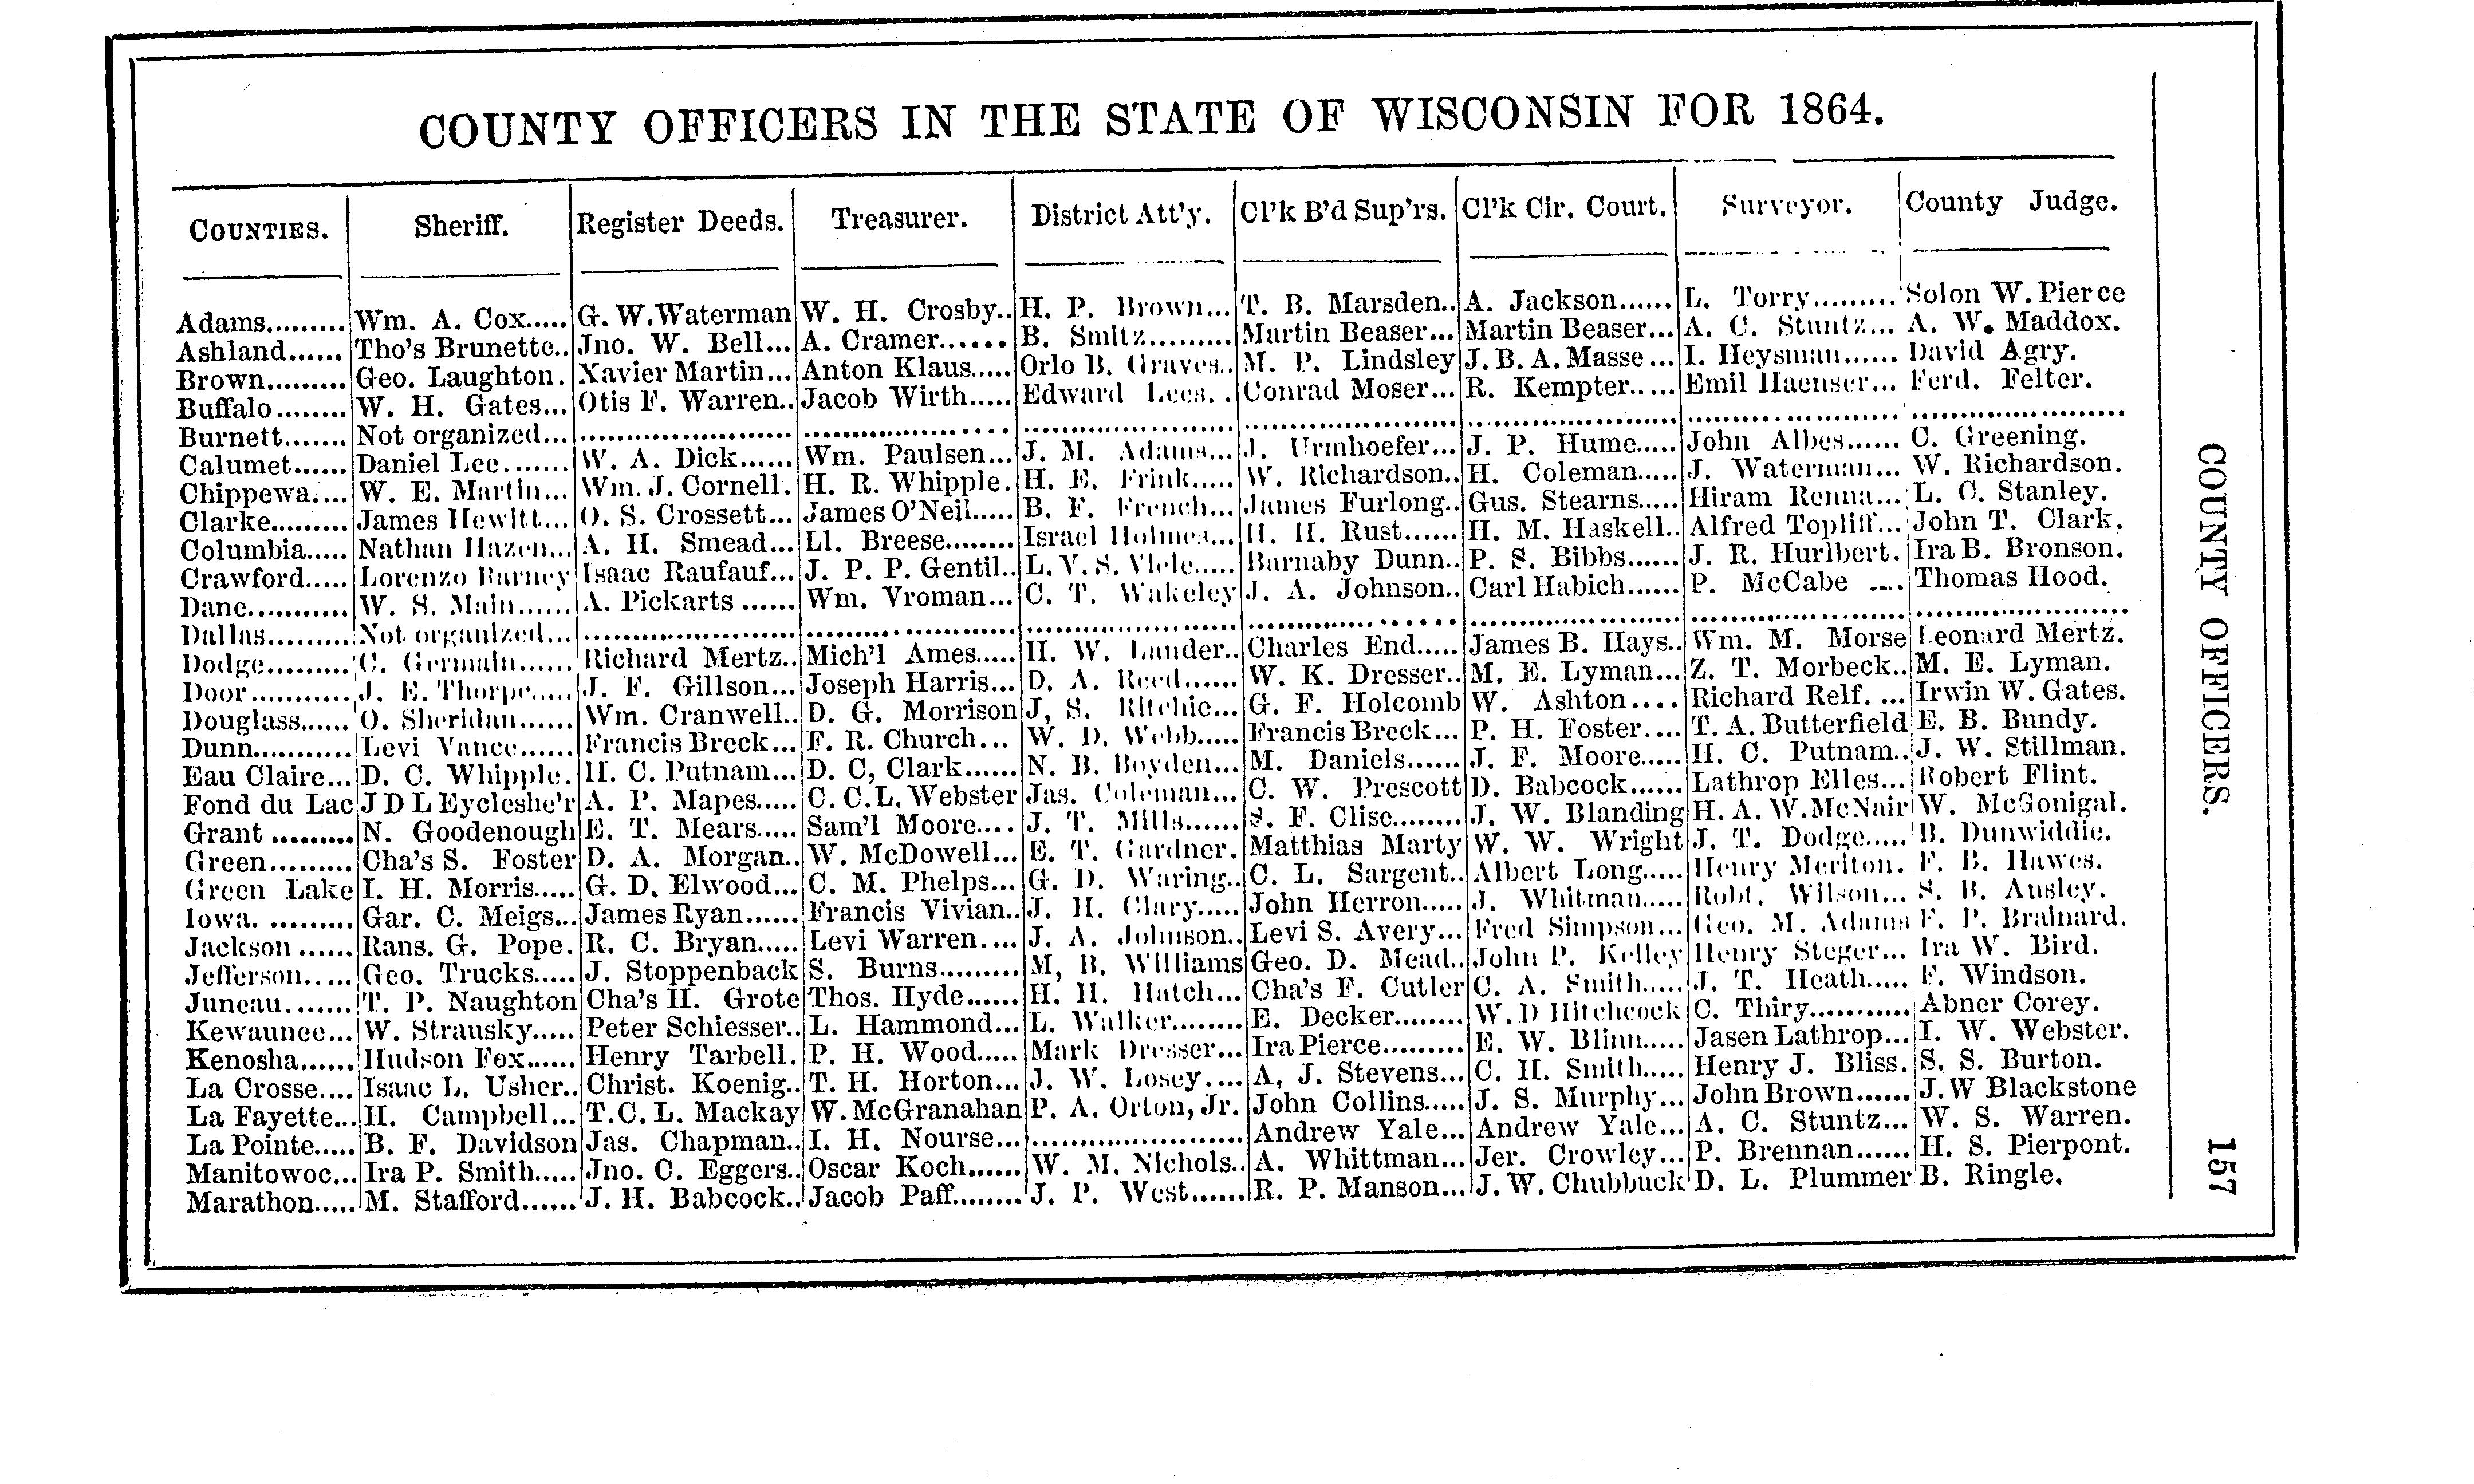 COUNTY OFFICERS IN THE STATE OF WISCONSIN FOR 1864.
COUNTIES. Sheriff. Register Deeds. Treasurer. District Att'y. Cl'k B'd Sup'rs. Cl'k Cir. Court. Surveyor. County Judge.
Adams......... Wm. A. Cox..... G. W. Waterman W. H. Crosby.. H. P. Brown... T. B. Marsden.. A. Jackson...... L. Torry......... Solon W. Pierce
Ashland...... Tho's Brunette.. Jno. W. Bell... A. Cramer...... B. Smitz......... Martin Beaser... Martin Beaser... A. C. Stuntz... A. W. Maddox.
Brown......... Geo. Laughton. Xavier Martin... Anton Klaus..... Orlo B. Graves.. M. P. Lindsley J. B. A. Masse... I. Heysman...... David Agry.
Buffalo........ W. H. Gates... Otis F. Warren.. Jacob Wirth..... Edward Lees. . Conrad Moser... R. Kempter..... Emil Haenser... Ferd. Felter.
Burnett....... Not organized... ..................... ..................... ..................... ..................... ..................... ..................... .....................
Calumet...... Daniel Lee....... W. A. Dick...... Wm. Paulsen... J. M. Adams... J. Urmhoefer... J. P. Hume..... John Albes...... C. Greening.
Chippewa.... W. E. Martin... Wm. J. Cornell. H. R. Whipple. H. E. Frink..... W. Richardson.. H. Coleman..... J. Waterman... W. Richardson.
Clarke......... James Hewitt... O. S. Crossett... James O'Neil..... B. F. French... James Furlong.. Gus. Stearns..... Hiram Renna... L. C. Stanley.
Columbia..... Nathan Hazen... A. H. Smead... Ll. Breese........ Israel Holmes... H. H. Rust...... H. M. Haskell.. Alfred Topliff... John T. Clark.
Crawford..... Lorenzo Barney Isaac Raufauf... J. P. P. Gentil.. L. V. S. Viele..... Barnaby Dunn.. P. S. Bibbs...... J. R. Hurlbert. Ira B. Bronson.
Dane........... W. S. Main...... A. Pickarts ...... Wm. Vroman... C. T. Wakeley J. A. Johnson.. Carl Habich...... P. McCabe .... Thomas Hood.
Dallas......... Not organized... ..................... ..................... ..................... ..................... ..................... ..................... .....................
Dodge......... C. Germain...... Richard Mertz.. Mich'l Ames..... H. W. Lander.. Charles End..... James B. Hays.. Wm. M. Morse Leonard Mertz.
Door........... J. E. Thorpe..... J. F. Gillson... Joseph Harris... D. A. Reed...... W. K. Dresser.. M. E. Lyman... Z. T. Morbeck.. M. E. Lyman.
Douglass...... O. Sheridan...... Wm. Cranwell.. D. G. Morrison J, S. Ritchie... G. F. Holcomb W. Ashton.... Richard Relf. ... Irwin W. Gates.
Dunn........... Levi Vance...... Francis Breck... F. R. Church... W. D. Webb..... Francis Breck... P. H. Foster.... T. A. Butterfield E. B. Bundy.
Eau Claire... D. C. Whipple. H. C. Putnam... D. C, Clark...... N. B. Boyden... M. Daniels...... J. F. Moore..... H. C. Putnam.. J. W. Stillman.
Fond du Lac J D L Eycleshe'r A. P. Mapes..... C. C. L. Webster Jas. Coleman... C. W. Prescott D. Babcock...... Lathrop Elles... Robert Flint.
Grant ......... N. Goodenough E. T. Mears..... Sam'l Moore.... J. T. Mills...... S. F. Clise........ J. W. Blanding H. A. W. McNair W. McGonigal.
Green......... Cha's S. Foster D. A. Morgan.. W. McDowell... E. T. Gardner. Matthias Marty W. W. Wright J. T. Dodge..... B. Dunwiddie.
Green Lake I. H. Morris..... G. D. Elwood... C. M. Phelps... G. D. Waring.. C. L. Sargent.. Albert Long..... Henry Meriton. F. B. Hawes.
Iowa. ......... Gar. C. Meigs... James Ryan...... Francis Vivian.. J. H. Clary..... John Herron..... J. Whitman..... Robt. Wilson... S. B. Ansley.
Jackson ...... Rans. G. Pope. R. C. Bryan..... Levi Warren.... J. A. Johnson.. Levi S. Avery... Fred Simpson... Geo. M. Adams F. P. Brainard.
Jefferson..... Geo. Trucks..... J. Stoppenback S. Burns......... M, B. Williams Geo. D. Mead.. John P. Kelley Henry Steger... Ira W. Bird.
Juneau....... T. P. Naughton Cha's H. Grote Thos. Hyde...... H. H. Hatch... Cha's F. Cutler C. A. Smith..... J. T. Heath..... F. Windson.
Kewaunee... W. Strausky..... Peter Schiesser.. L. Hammond... L. Walker........ E. Decker........ W. D Hitchcock C. Thiry........... Abner Corey.
Kenosha...... Hudson Fox...... Henry Tarbell. P. H. Wood..... Mark Dresser... Ira Pierce......... E. W. Blinn..... Jasen Lathrop... I. W. Webster.
La Crosse.... Isaac L. Usher.. Christ. Koenig.. T. H. Horton... J. W. Losey.... A, J. Stevens... C. H. Smith..... Henry J. Bliss. S. S. Burton.
La Fayette... H. Campbell... T. C. L. Mackay W. McGranahan P. A. Orton, Jr. John Collins..... J. S. Murphy... John Brown...... J. W Blackstone
La Pointe..... B. F. Davidson Jas. Chapman.. I. H. Nourse... ..................... Andrew Yale... Andrew Yale... A. C. Stuntz... W. S. Warren.
Manitowoc... Ira P. Smith..... Jno. C. Eggers.. Oscar Koch...... W. M. Nichols.. A. Whittman... Jer. Crowley... P. Brennan...... H. S. Pierpont.
Marathon..... M. Stafford...... J. H. Babcock.. Jacob Paff........ J. P. West...... R. P. Manson... J. W. Chubbuck D. L. Plummer B. Ringle.
COUNTY OFFICERS. 157